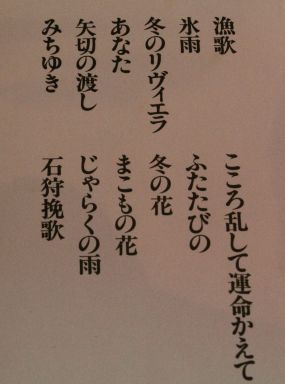 漁歌
氷雨
冬のリヴィエラ
あなた
矢切の渡し
みちゆき
こころ乱して運命かえて
ふたたびの
冬の花
まこもの花
じゃらくの雨
石狩挽歌